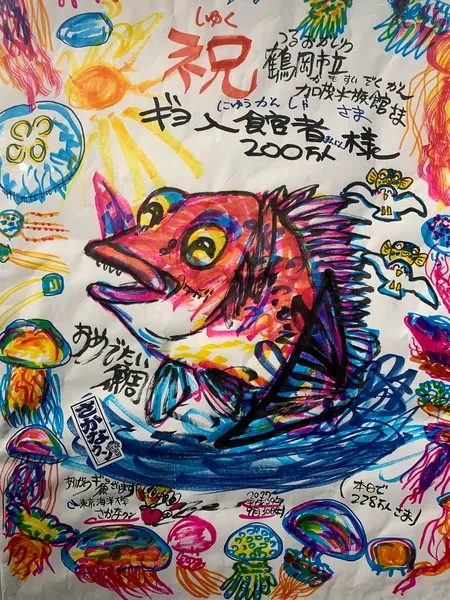 しゅく
祝
つるおかしりつ
鶴岡市立
かもすいぞくかん
加茂水族館様
にゅうかんしゃ さま
ギョ入館者様
200万人
おめでたい
鯛
さかなクン
ありがとうギョざいます
東京海洋大学
さかなクン
本日で
228万人さま